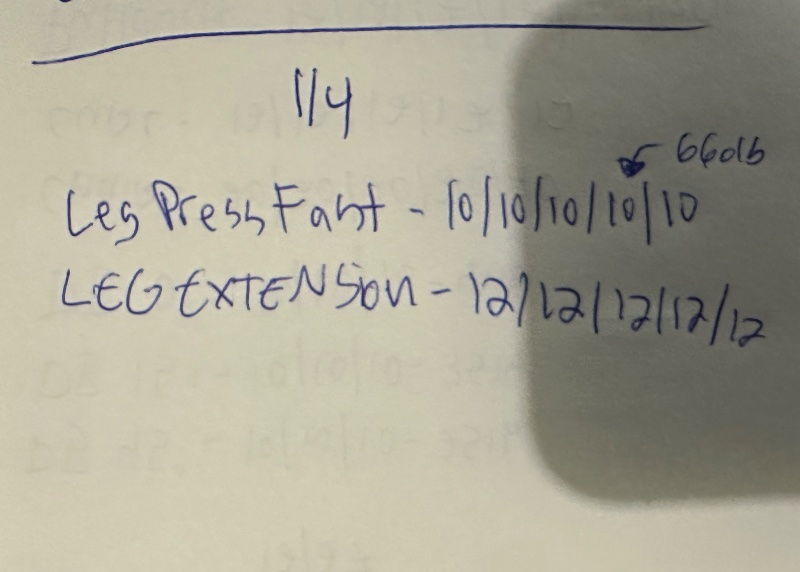 1/4
660lb
Leg Press Fast - 10/10/10/10/10
LEG EXTENSION - 12/12/12/12/12